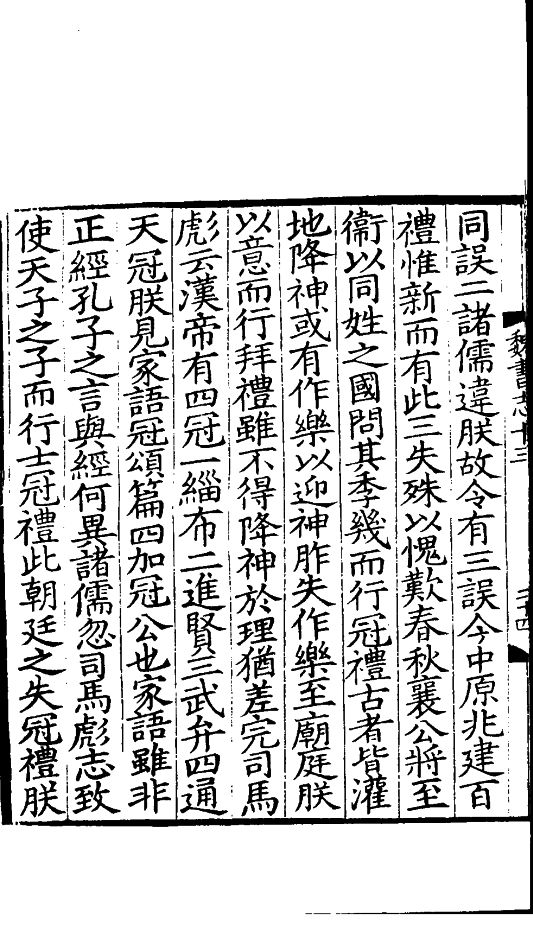 魏書志十三
二十四
同誤二諸儒違朕故令有三誤今中原兆建百
禮惟新而有此三失殊以愧歎春秋襄公將至
衞以同姓之國問其季幾而行冠禮古者皆灌
地降神或有作樂以迎神胙失作樂至廟庭朕
以意而行拜禮雖不得降神於理猶差完司馬
彪云漢帝有四冠一緇布二進賢三武弁四通
天冠朕見家語冠頌篇四加冠公也家語雖非
正經孔子之言與經何異諸儒忽司馬彪志致
使天子之子而行士冠禮此朝廷之失冠禮朕